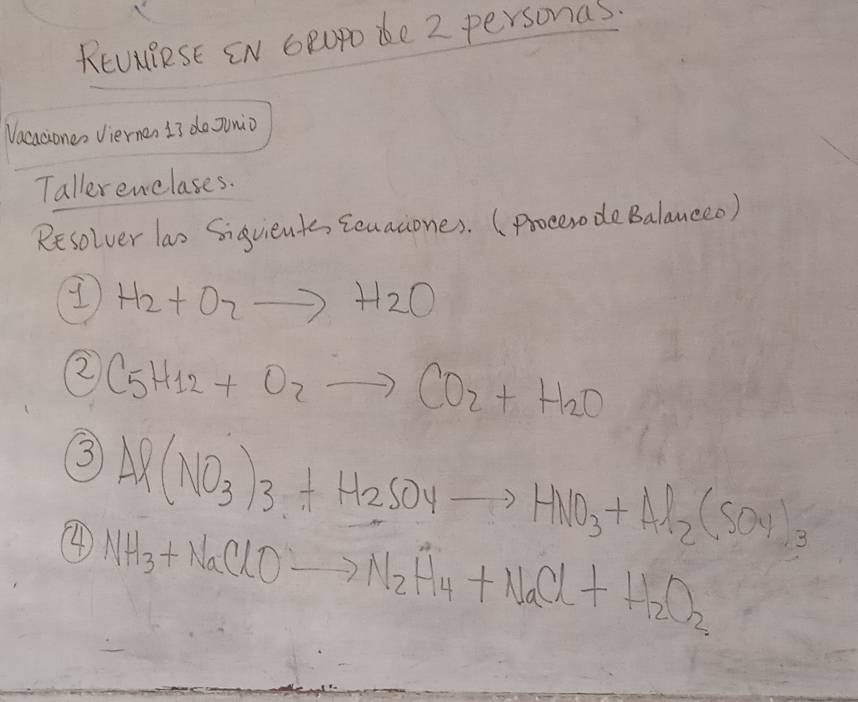 REUNIRSE EN GRUPO de 2 personas.
Vacaciones Viernes 13 de Junio
Taller en clases.
RESOLVER las Siguientes Ecuaciones. (Proceso de Balanceo)
① H2 + O2 → H2O
② C5H12 + O2 → CO2 + H2O
③ Al(NO3)3 + H2SO4 → HNO3 + Al2(SO4)3
④ NH3 + NaClO → N2H4 + NaCl + H2O2